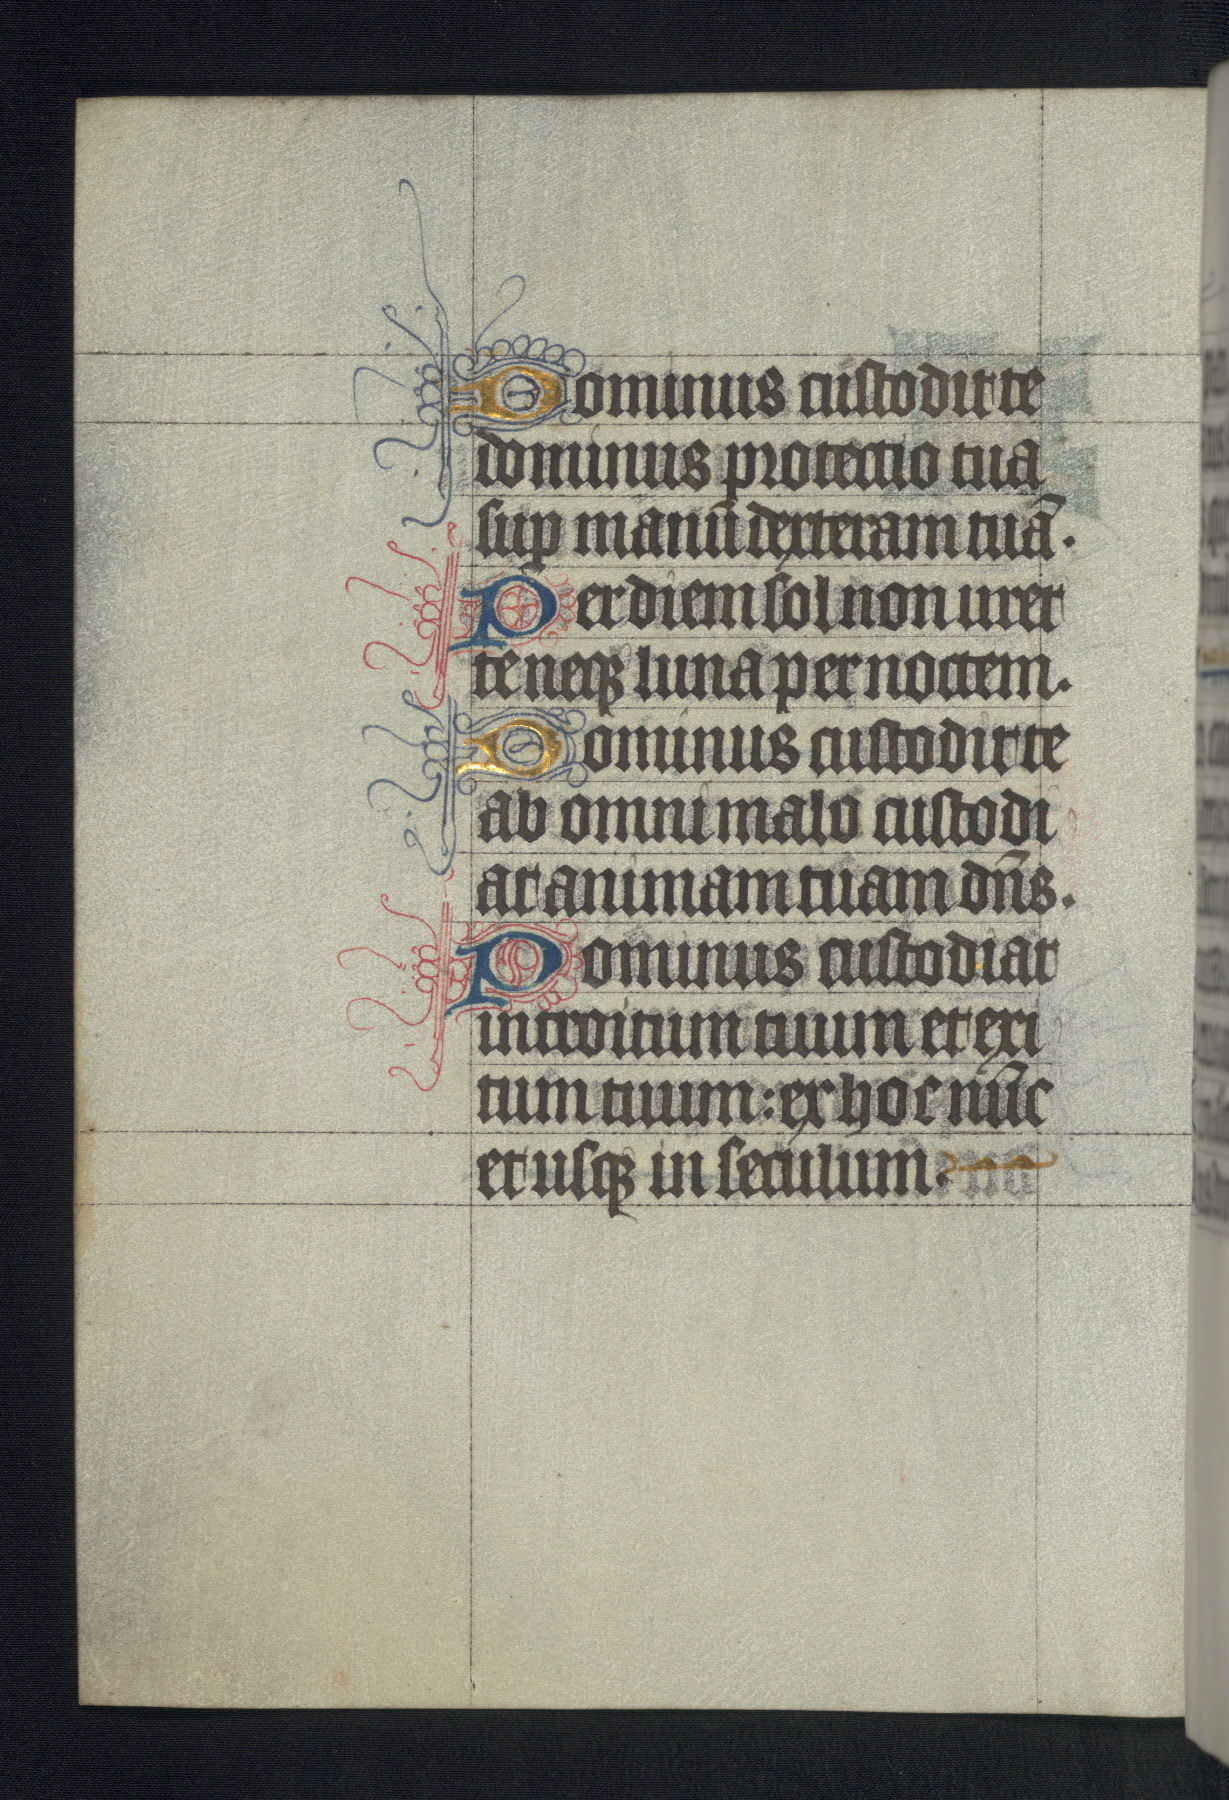 Dominus custodit te
dominus protectio tua
sup manū dexteram tuā.
Per diem sol non uret
te neqꝫ luna per noctem.
Dominus custodit te
ab omni malo custodi
at animam tuam dn̄s.
Pominus custodiat
introitum tuum et exi
tum tuum: ex hoc nūc
et usqꝫ in seculum.